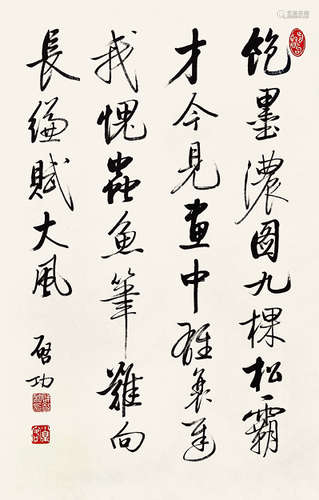 飽墨濃圖九棵松霸
才今見畫中雄
我愧蟲魚筆難向
長縑賦大風
啓功